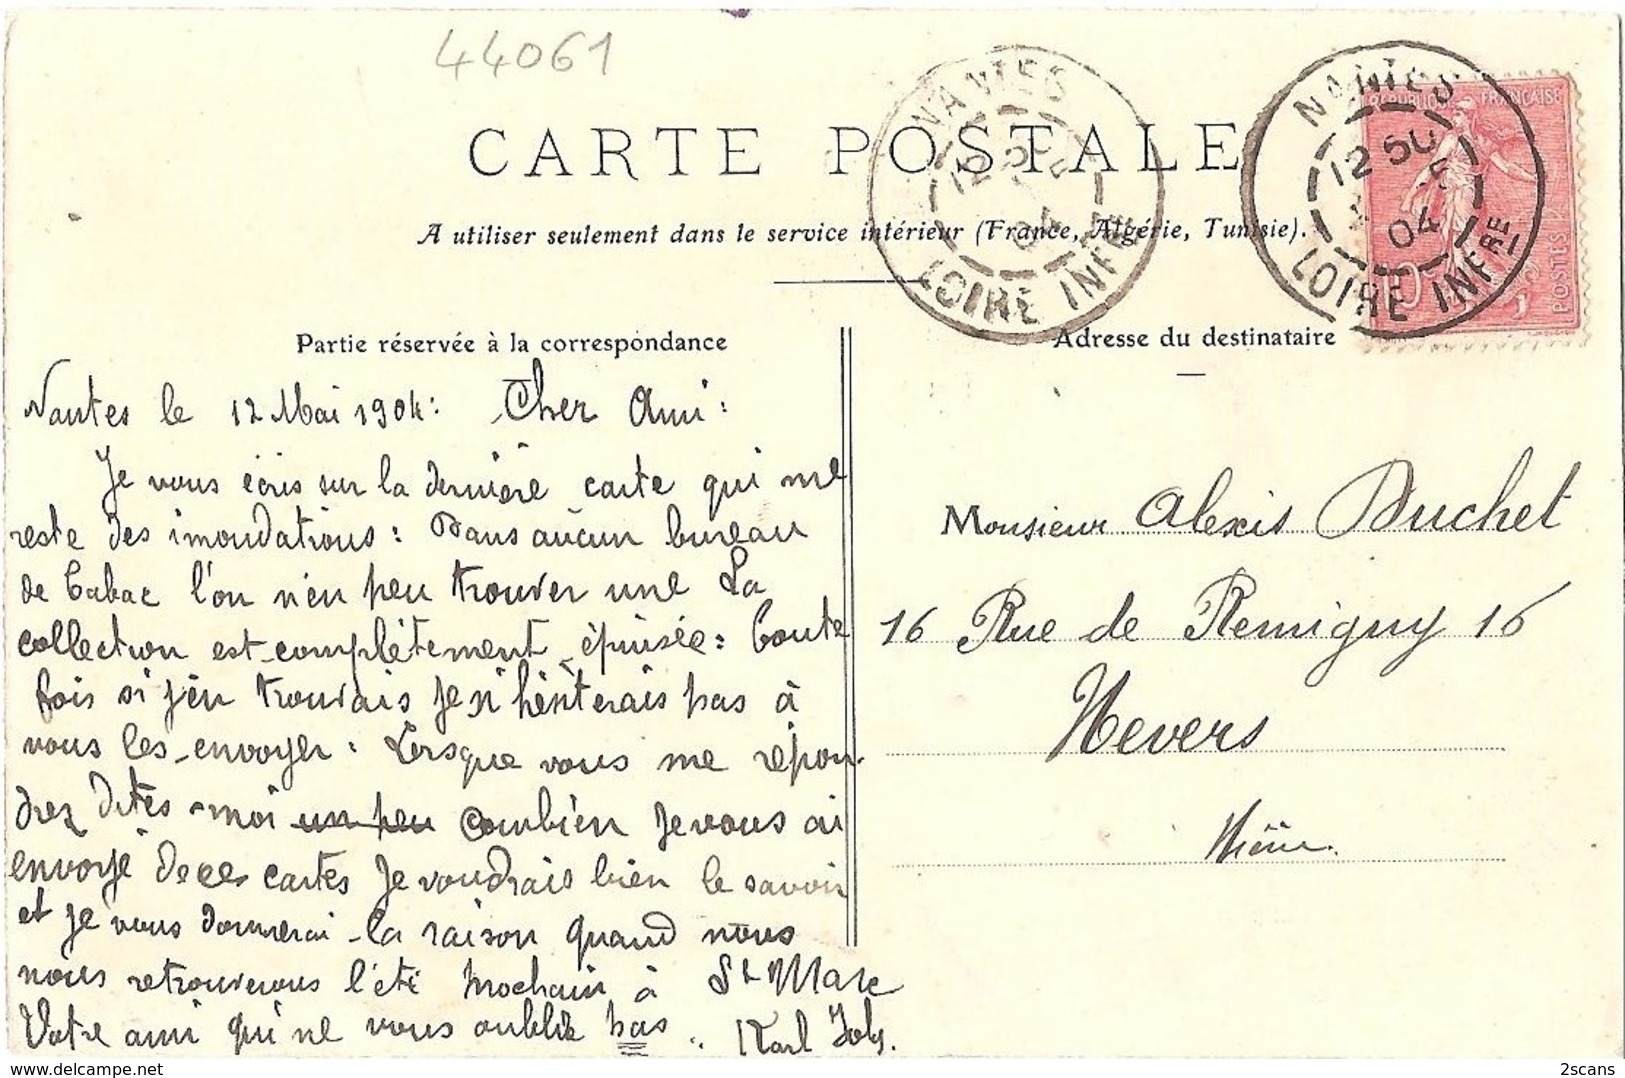 44061
CARTE POSTALE
A utiliser seulement dans le service intérieur (France, Algérie, Tunisie).
NANTES
12
04
LOIRE INFRE
NANTES
12 50
04
LOIRE INFRE
REPUBLIQUE FRANÇAISE
10
POSTES
Partie réservée à la correspondance
Nantes le 12 Mai 1904: Cher Ami:
Je vous écris sur la dernière carte qui me
reste des imondations: Dans aucun bureau
de tabac l'on n'en peu trouver une La
collection est complètement épuisée: toute
fois si j'en trouvais je n'hésiterais pas à
vous les envoyer: Lorsque vous me répon-
drez dites-moi un peu combien je vous ai
envoyé de ces cartes je voudrais bien le savoir
et je vous donnerai la raison quand nous
nous retrouverons l'été prochain à St Marc
Votre ami qui ne vous oublie pas .. Karl
Adresse du destinataire
Monsieur Alexis Duchet
16 Rue de Remigny 16
Nevers
Nièvre.
2scans